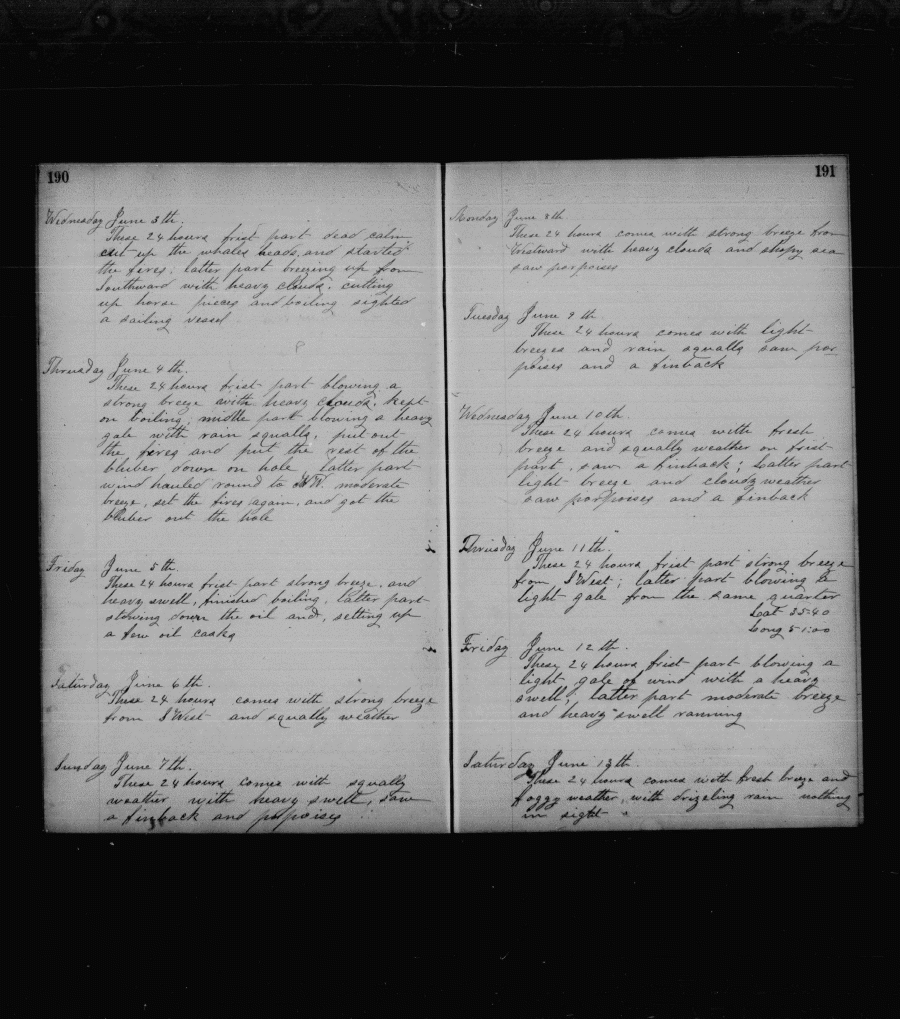 190
Wednesday June 3th.
These 24 hours frist part dead calm
cut up the whales heads, and started
the fires; latter part breezing up from
Southward with heavy clouds. cutting
up horse pieces and boiling sighted
a sailing vessel
Thrusday June 4th.
These 24 hours frist part blowing a
strong breeze with heavy clouds. kept
on boiling; midlle part blowing a heavy
gale with rain squalls, put out
the fires and put the rest of the
bluber down on hole, latter part
wind hauled round to NW. moderate
breeze, set the fires again, and got the
bluber out the hole
Friday June 5th.
These 24 hours frist part strong breeze, and
heavy swell, finished boiling, latter part
stowing down the oil and, setting up
a few oil casks
Saturday June 6th.
These 24 hours comes with strong breeze
from S West and squally weather
Sunday June 7th.
These 24 hours comes with squally
weather with heavy swell, saw
a finback and porpoises
191
Monday June 8th.
These 24 hours comes with strong breeze from
Westward with heavy clouds and shopy sea
saw porpoises
Tuesday June 9th.
These 24 hours comes with light
breezes and rain squalls saw por
poises and a finback
Wednesday June 10th.
These 24 hours comes with fresh
breeze and squally weather on frist
part, saw a finback; Latter part
light breeze and cloudy weather
saw porpoises and a finback
Thrusday June 11th.
These 24 hours, frist part strong breeze
from S West; latter part blowing a
light gale from the same quarter
Lat 35-40
Long 51:00
Friday June 12th.
These 24 hours frist part blowing a
light gale of wind with a heavy
swell; latter part moderate breeze
and heavy swell running
Saturday June 13th.
These 24 hours comes with fresh breeze and
foggy weather, with drizeling rain nothing
in sight